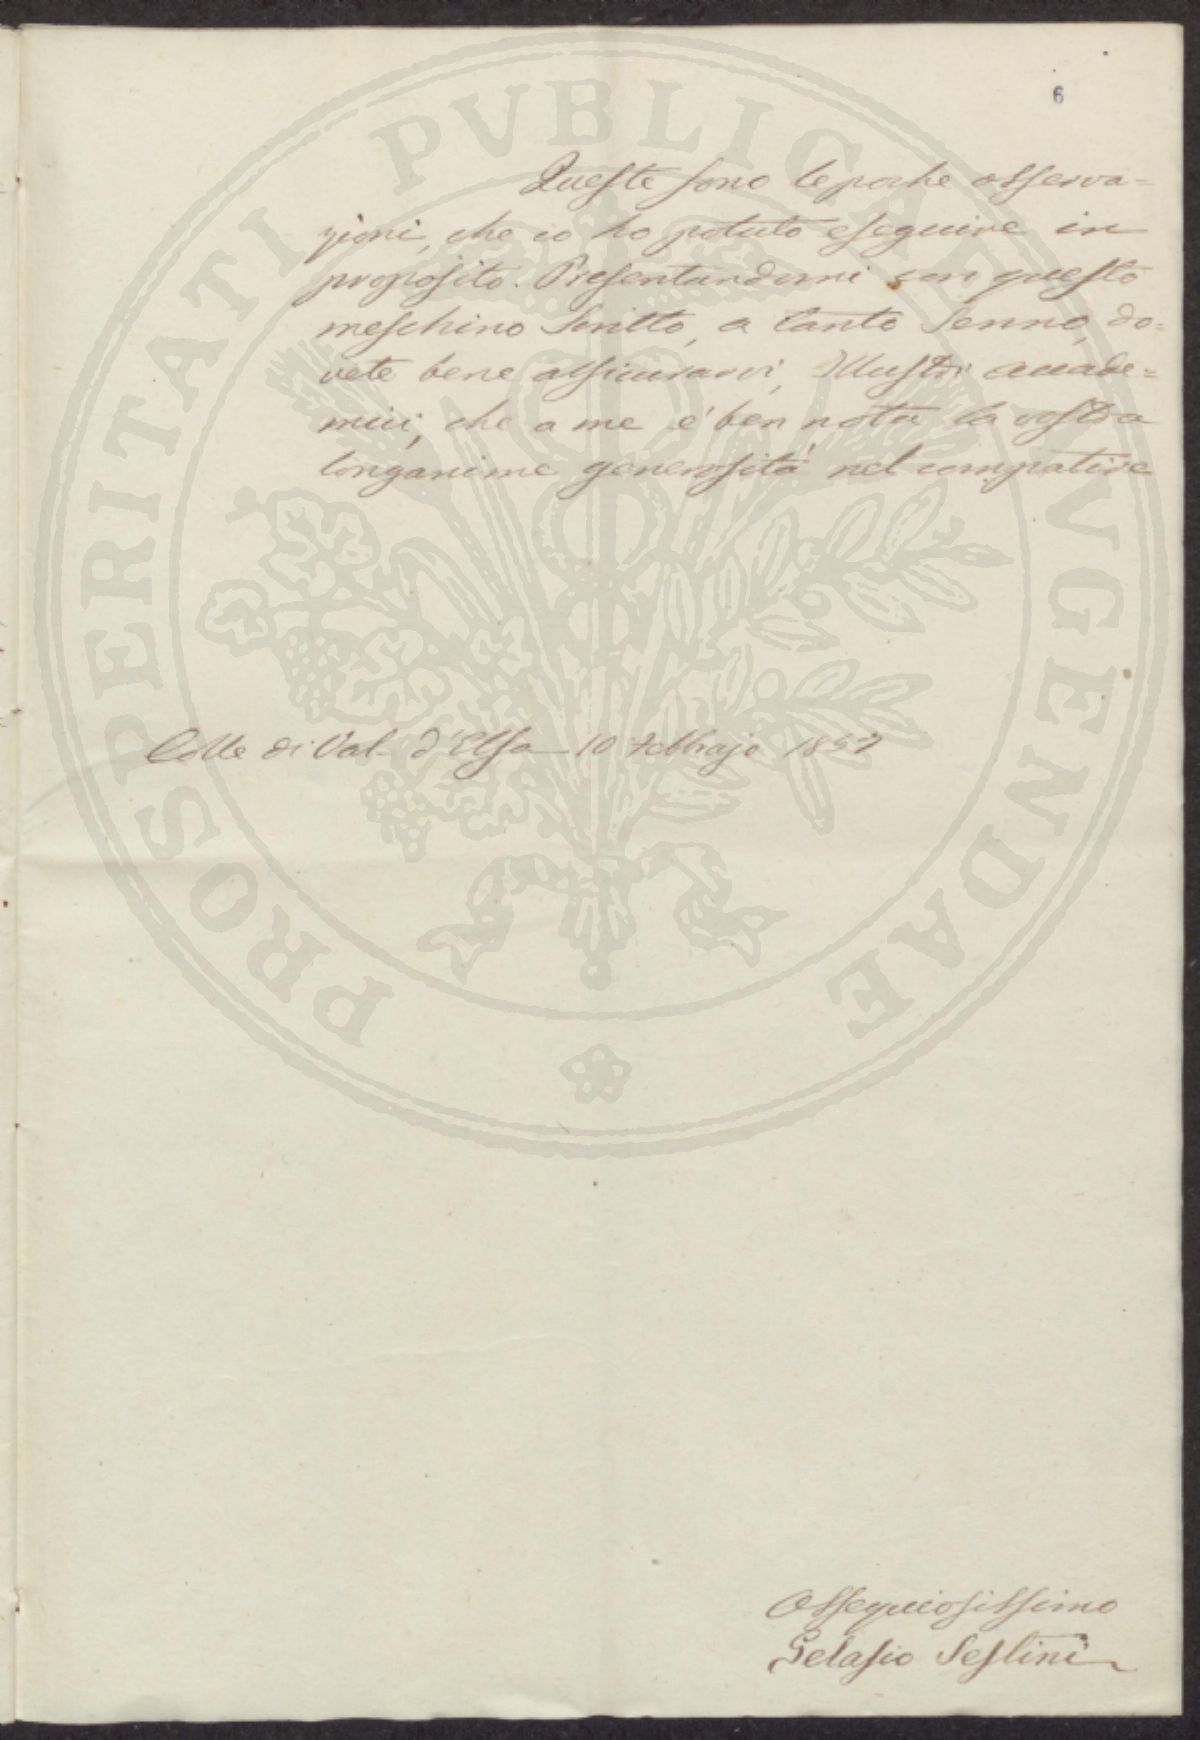 6
Queste sono le poche osserva=
zioni, che io ho potuto eseguire in
proposito. Presentandomi con questo
meschino Scritto, a tanto Senno, do=
vete bene assicurarvi, Illustri Accade=
mici, che a me é ben nota la vostra
longanime generositá nel compatire
Colle di Val d'Elsa 10 Febbrajo 1857
Ossequiosissimo
Gelasio Sestini
PROSPERITATI PVBLICAE AVGENDAE